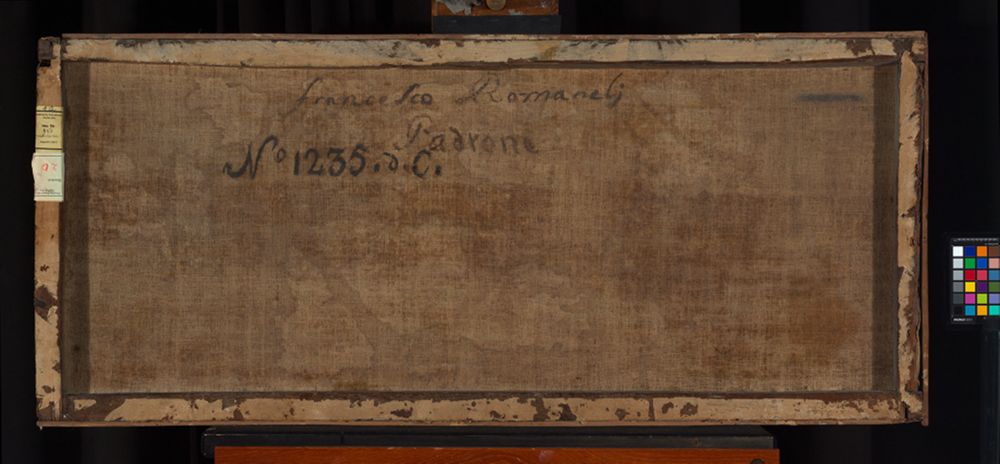 Francesco Romanelj
Padrone
Nº 1235. d. C.